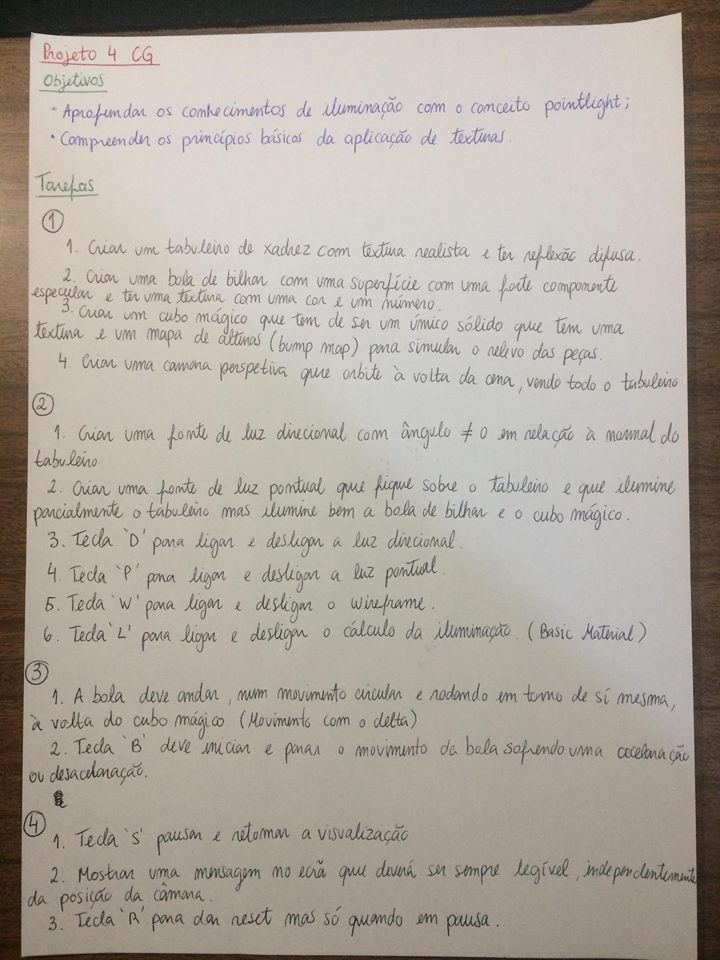 Projeto 4 CG
Objetivos
• Aprofundar os conhecimentos de iluminação com o conceito pointlight;
• Compreender os princípios básicos da aplicação de texturas.
Tarefas
1
1. Criar um tabuleiro de xadrez com textura realista e ter reflexão difusa.
2. Criar uma bola de bilhar com uma superfície com uma forte componente
especular e ter uma textura com uma cor e um número.
3. Criar um cubo mágico que tem de ser um único sólido que tem uma
textura e um mapa de alturas (bump map) para simular o relevo das peças.
4. Criar uma camara perspetiva que orbite à volta da cena, vendo todo o tabuleiro
2
1. Criar uma fonte de luz direcional com ângulo ≠ 0 em relação à normal do
tabuleiro
2. Criar uma fonte de luz pontual que fique sobre o tabuleiro e que ilumine
parcialmente o tabuleiro mas ilumine bem a bola de bilhar e o cubo mágico.
3. Tecla 'D' para ligar e desligar a luz direcional.
4. Tecla 'P' para ligar e desligar a luz pontual.
5. Tecla 'W' para ligar e desligar o wireframe.
6. Tecla 'L' para ligar e desligar o cálculo da iluminação. (Basic Material)
3
1. A bola deve andar, num movimento circular e rodando em torno de si mesma,
à volta do cubo mágico (Movimento com o delta)
2. Tecla 'B' deve iniciar e parar o movimento da bola sofrendo uma acelaração
ou desacelaração.
4
1. Tecla 'S' pausar e retomar a visualização
2. Mostrar uma mensagem no ecrã que deverá ser sempre legível, independentemente
da posição da câmara.
3. Tecla 'R' para dar reset mas só quando em pausa.